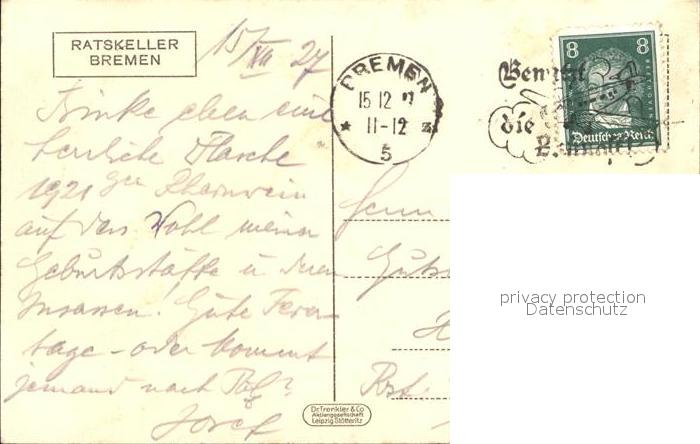 RATSKELLER
BREMEN
15/XII 27
Trinke eben eine
herrliche Flasche
1921 ger Rheinwein
auf das Wohl meiner
Geburtsstätte u deren
Insassen! Gute Feier-
tage - oder kommt
jemand nach
Josef
BREMEN
15 12
11-12
5
8 8
Deutsches Reich
Benutzt
die
Herrn
Guts
Dr Trenkler & Co
Aktiengesellschaft
Leipzig Stötteritz
privacy protection
Datenschutz